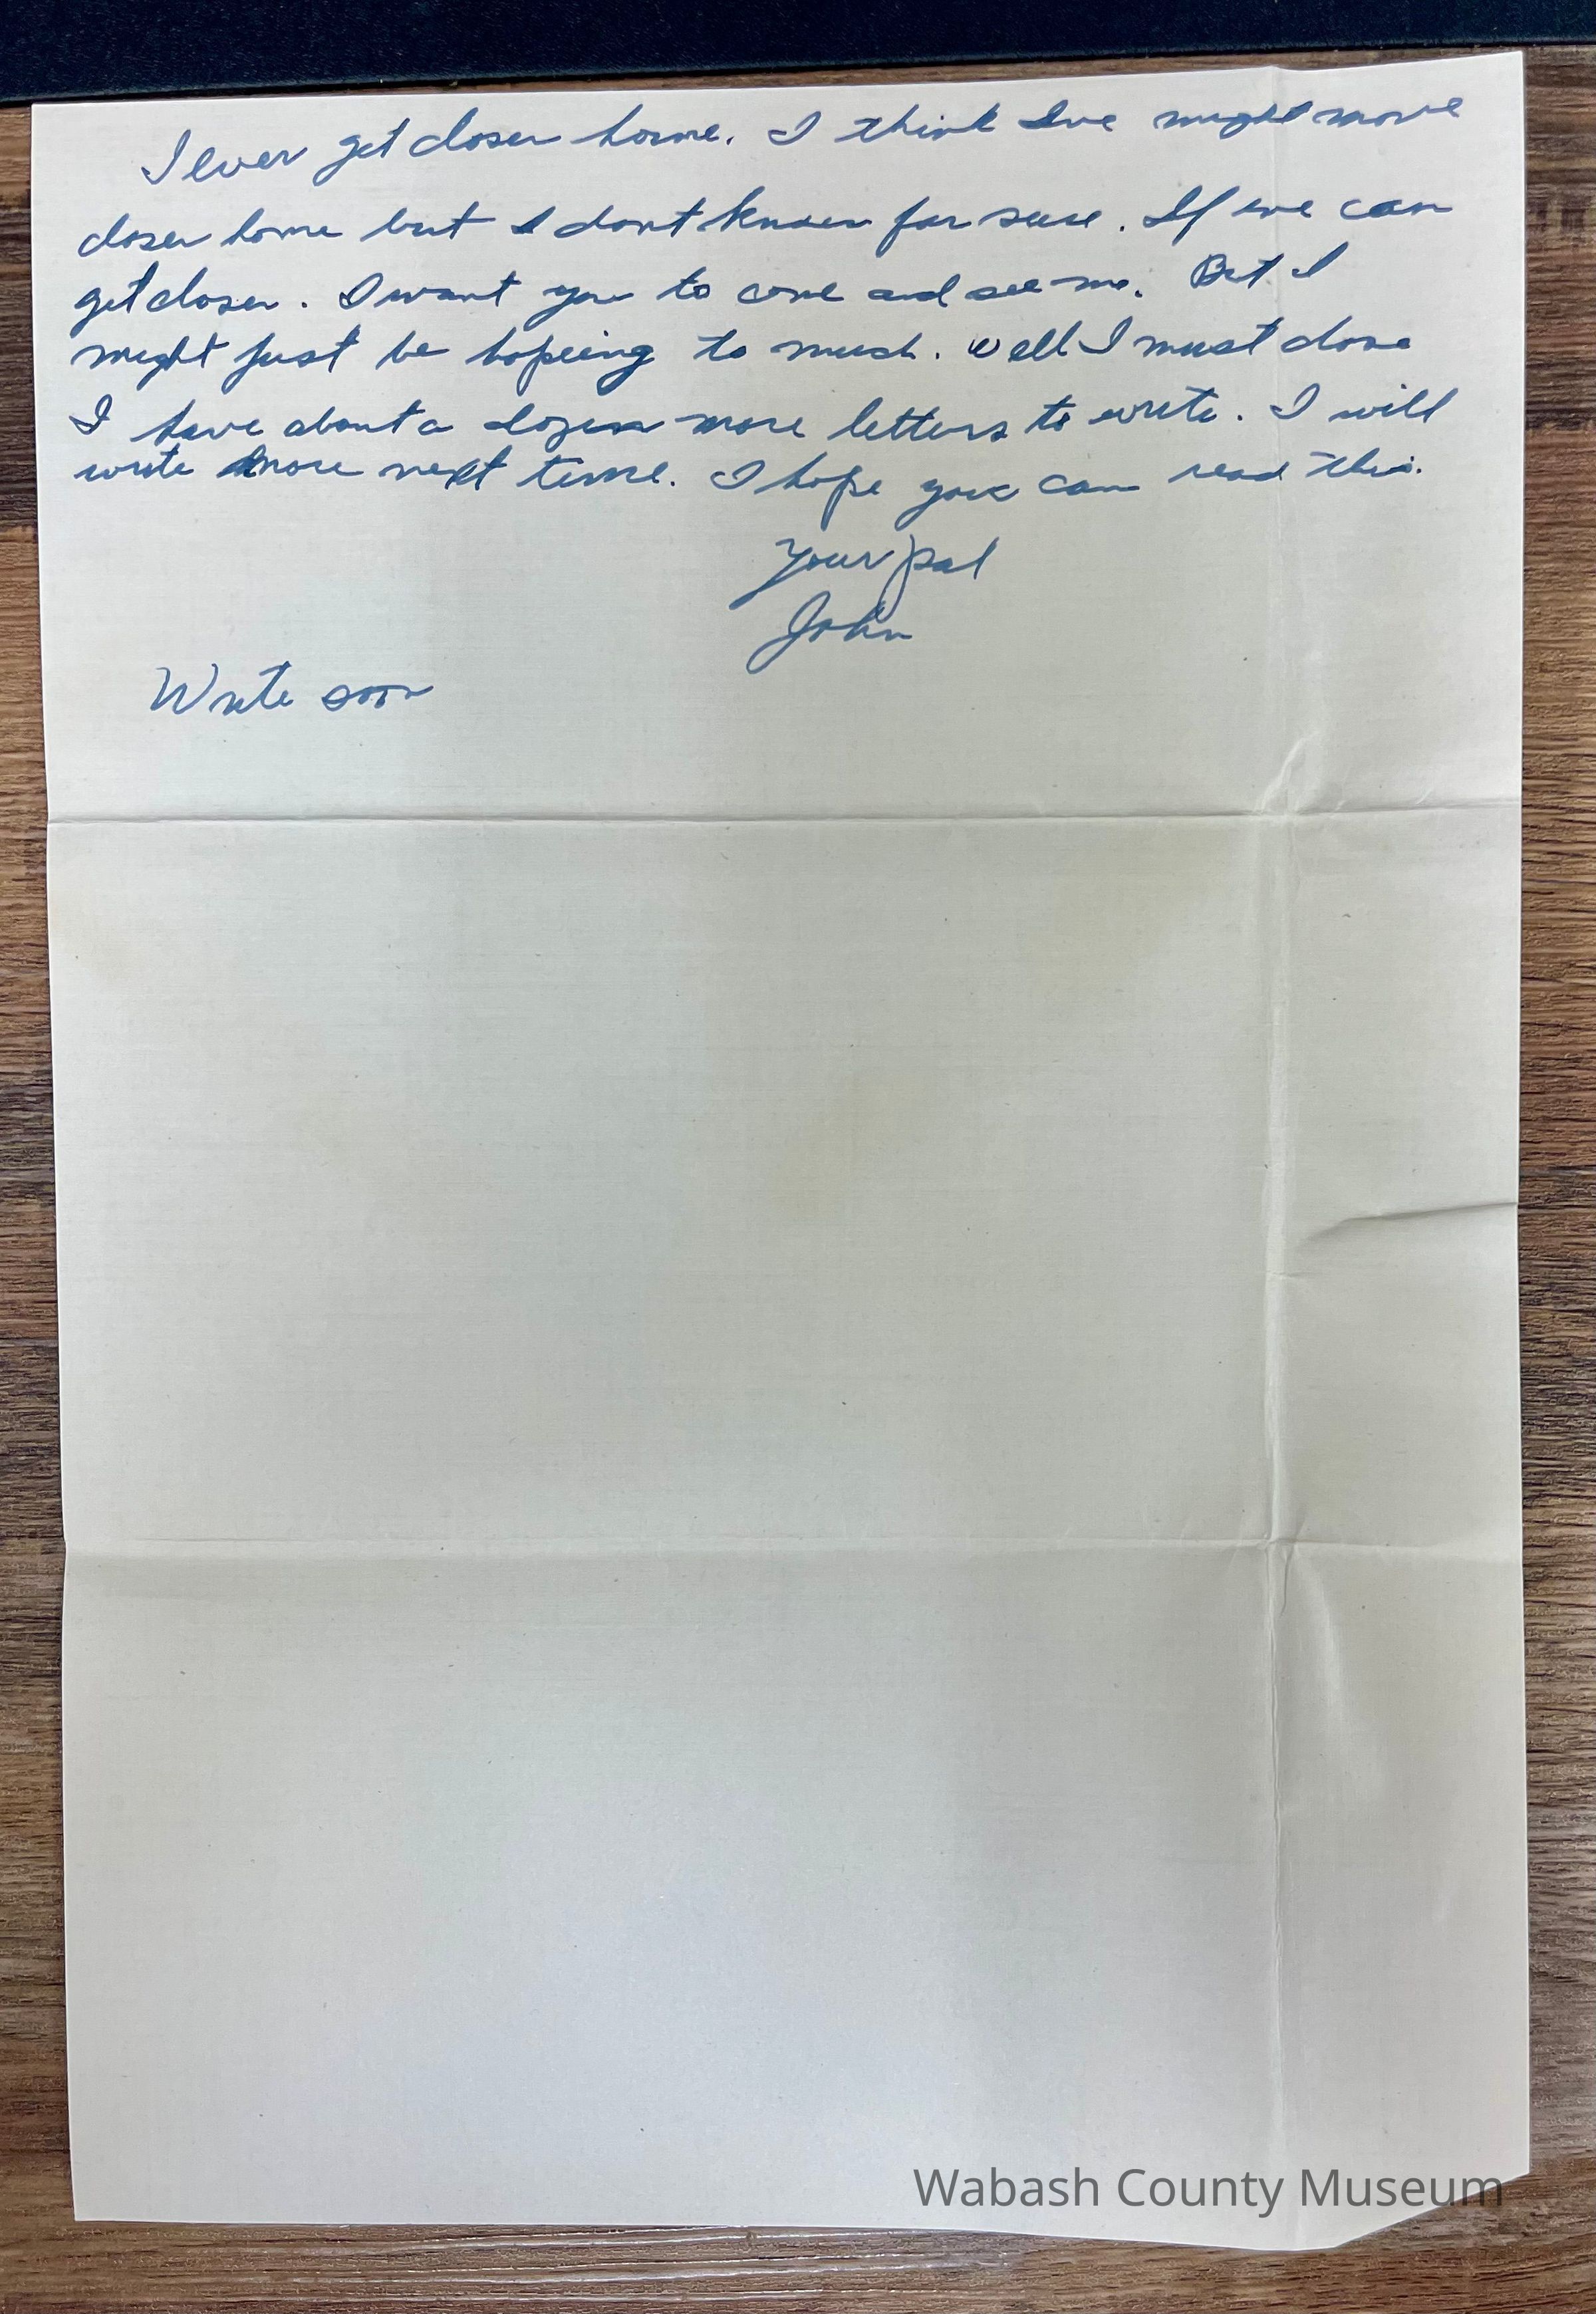 I ever get closer home. I think we might move
closer home but I dont know for sure. If we can
get closer. I want you to come and see me. But I
might just be hopeing to much. Well I must close
I have about a dozen more letters to write. I will
write more next time. I hope you can read this.
Your pal
John
Write soon
Wabash County Museum